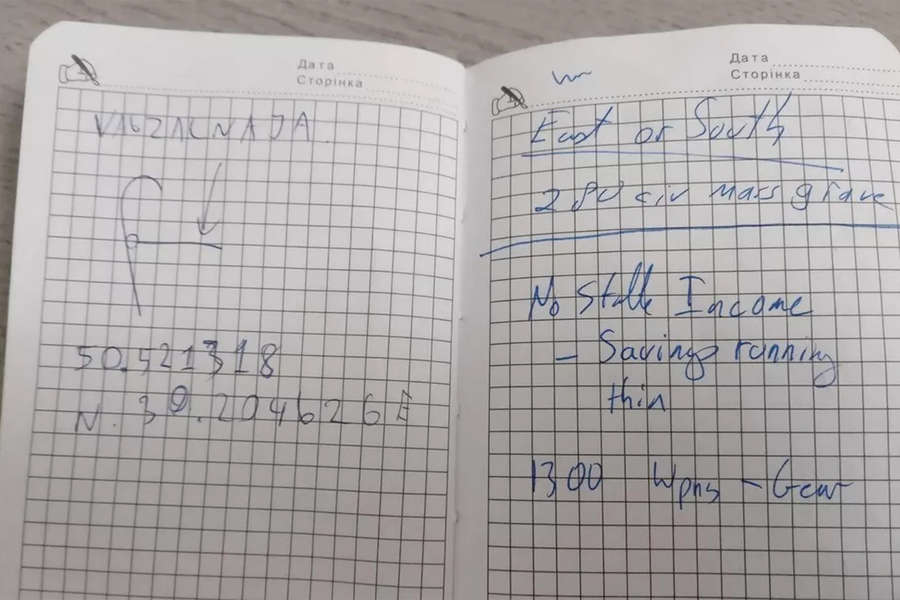 Дата
Сторінка
VAGZALNAJA
50.521318
N. 30.204626 E
Дата
Сторінка
East or South
280 civ mass grave
No Stable Income
- Savings running
thin
1300 Wpns - Gear